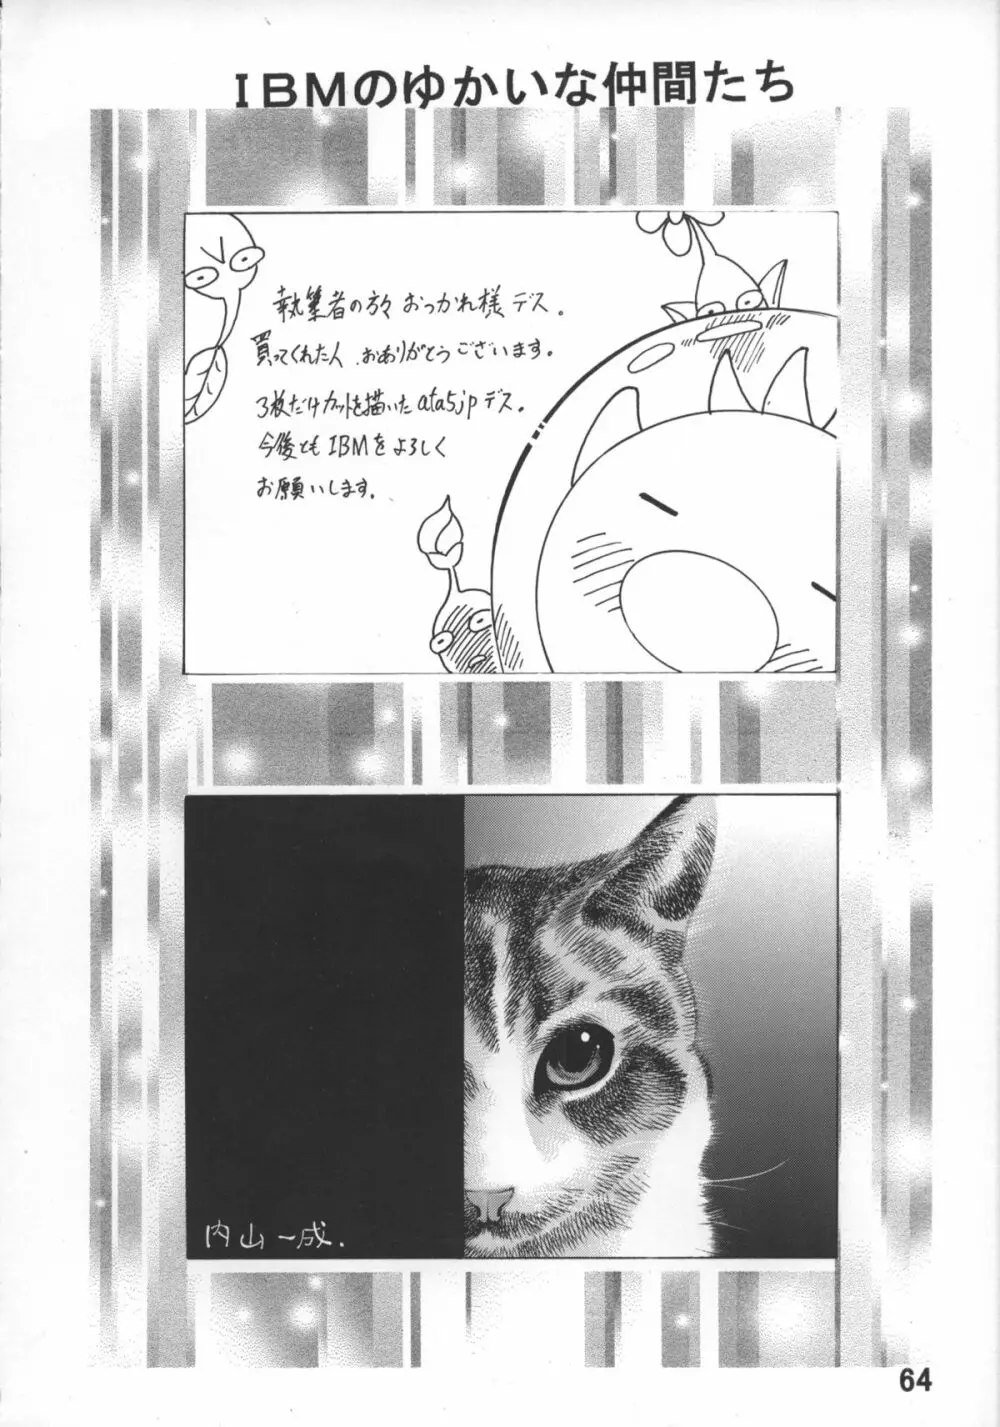 IBMのゆかいな仲間たち
執筆者の方々 おっかれ様デス。
買ってくれた人、おありがとうございます。
3枚だけカットを描いたata5.jpデス。
今後とも IBMをよろしく
お願いします。
内山一成.
64